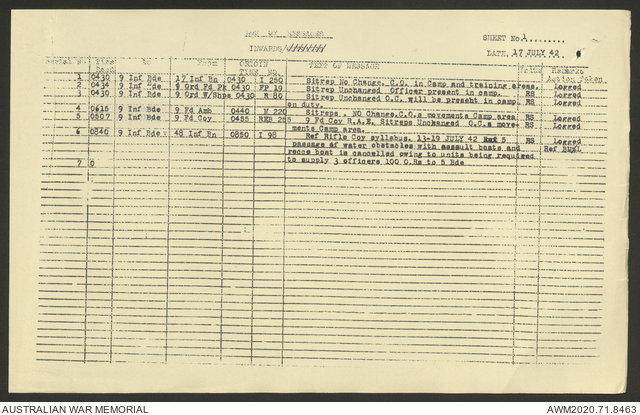 LOG OF MESSAGES
SHEET No. 1.........
INWARDS/
DATE. 17 JULY 42.
Serial No. Time To From ORIGIN TEXT OF MESSAGE Remarks
TIME NO. Action Taken
1 0430 9 Inf Bde 17 Inf Bn 0430 I 280 Sitrep No Change. C.O. in Camp and training areas. Logged
2 0434 9 Inf Bde 9 Ord Fd Pk 0430 FP 19 Sitrep Unchanged Officer present in camp. RS Logged
3 0430 9 Inf Bde 9 Ord W/Shps 0430 R 80 Sitrep Unchanged O.C. will be present in camp RS Logged
on duty.
4 0615 9 Inf Bde 9 Fd Amb 0440 M 226 Sitreps . NO Change.C.O.s movements Camp area RS Logged
5 0507 9 Inf Bde 9 Fd Coy 0455 9 Fd Coy R.A.E. Sitreps Unchanged O.C.s move- RS Logged
ments Camp area.
6 0840 9 Inf Bde 48 Inf Bn 0850 I 98 Ref Rifle Coy syllabus. 13-19 JULY 42 5 RS Logged
passage of water obstacles with assault boats and Ref
recce boat is cancelled owing to units being required
7 0 to supply 3 officers 100 O.Rs to 5 Bde
AUSTRALIAN WAR MEMORIAL
AWM2020.71.8463